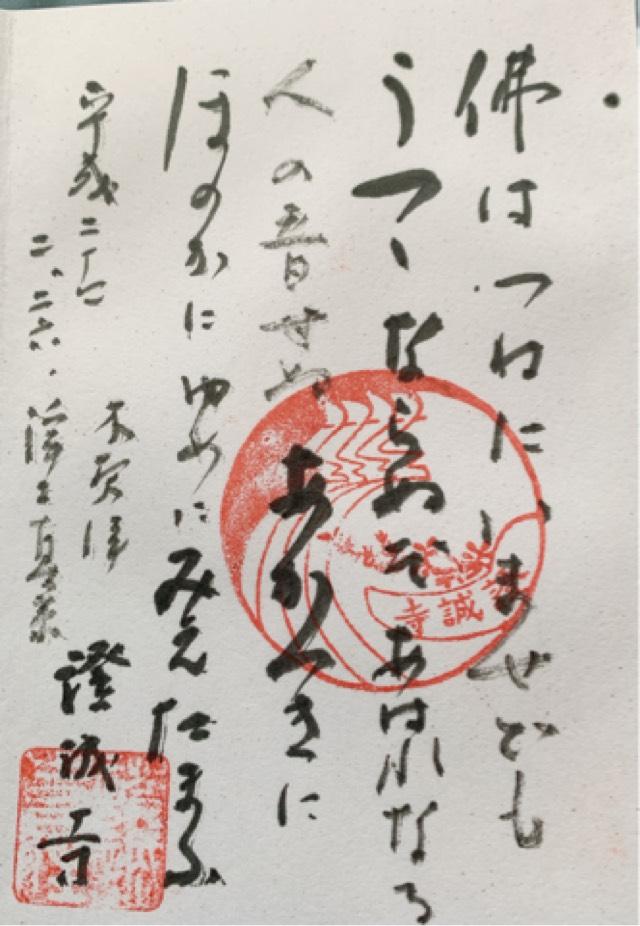 佛はつねにいませども
うつゝならぬぞあはれなる
人の音せぬあかつきに
ほのかにゆめにみえたまふ
平成二十六
二、二六、浄土真宗
本願寺
澄誠寺
誠寺